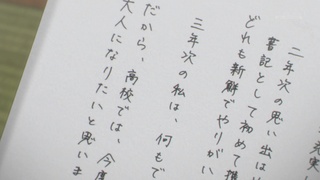 充実
二年次の思い出は
書記として初めて携
どれも新鮮でやりがい
三年次の私は、何もで
だから、高校では、今度
大人になりたいと思いま